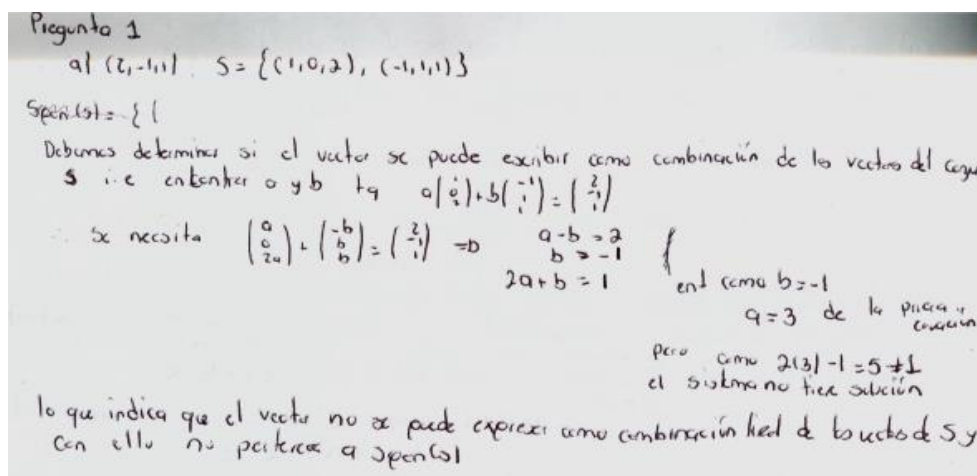 Pregunta 1
a) (2,-1,1). S = {(1,0,2), (-1,1,1)}
Span(S) = { (
Debemos determinar si el vector se puede escribir como combinación de los vectores del
S i.e encontrar a y b tq a(1 0 2) + b(-1 1 1) = (2 -1 1)
∴ se necesita (a 0 2a) + (-b b b) = (2 -1 1) => a-b = 2
b = -1
2a+b = 1
ent como b = -1
a = 3 de la primera ecuación
pero como 2(3)-1 = 5 ≠ 1
el sistema no tiene solución
lo que indica que el vector no se puede expresar como combinación lineal de los vectores de S y
con ello no pertenece a span(S)